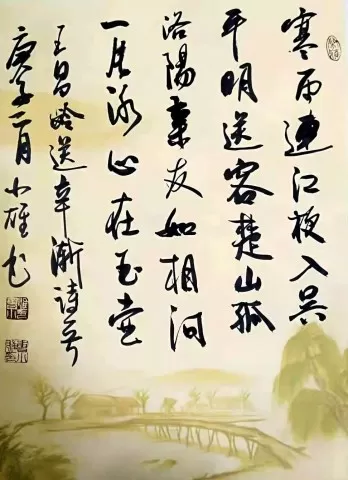 寒雨連江夜入吴
平明送客楚山孤
洛陽親友如相问
一片冰心在玉壶
王昌龄送辛漸詩一首
庚子二月小雄书